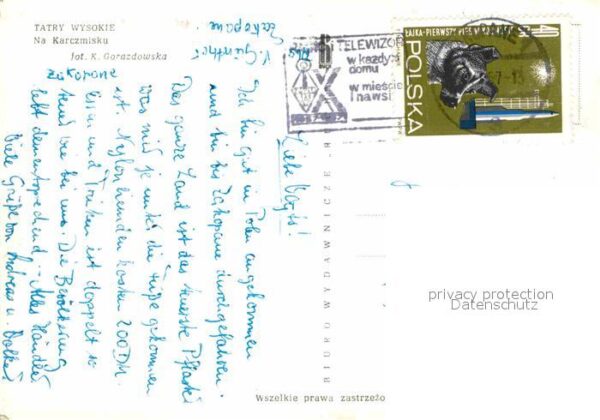 TATRY WYSOKIE
Na Karczmisku
fot. K. Gorazdowska
TELEWIZOR
w każdym
domu
w mieście
i na wsi
ŁAJKA-PIERWSZY PIES W KOSMOSIE
POLSKA
Zakopane
Liebe Vogts!
Ich bin gut in Polen angekommen
und bin bis Zakopane durchgefahren.
Das ganze Land ist das teuerste Pflaster
was mir je unter die Füße gekommen
ist. Nylonhemden kosten 200 DM.
Essen und Trinken ist doppelt so
wie bei uns. Die Bevölkerung
lebt dementsprechend. Alles Händler
Viele Grüße von Andreas u.
BIURO WYDAWNICZE
Wszelkie prawa zastrzeżo
privacy protection
Datenschutz